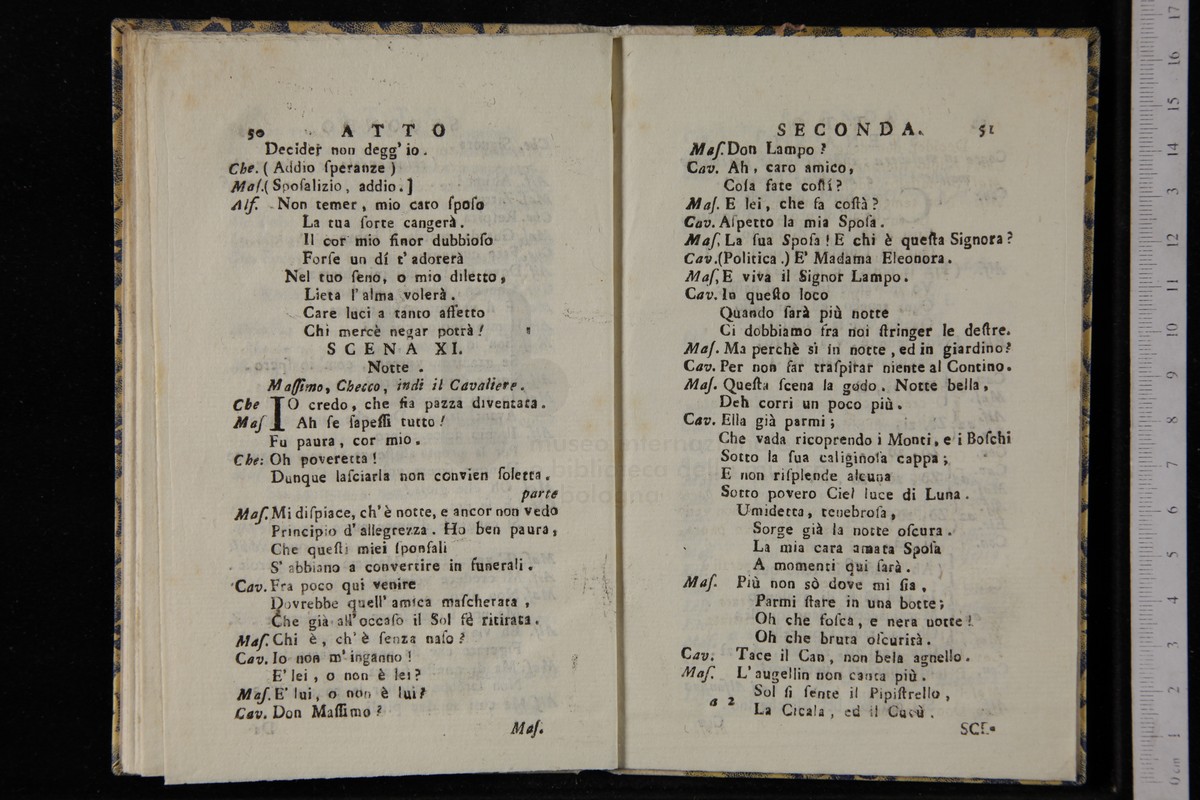 50 ATTO
Decider non degg' io.
Che. ( Addio ſperanze )
Maſ. ( Spoſalizio, addio. ]
Alf. Non temer, mio caro ſpoſo
La tua ſorte cangerà.
Il cor mio finor dubbioſo
Forſe un dí t' adorerà
Nel tuo ſeno, o mio diletto,
Lieta l' alma volerà.
Care luci a tanto affetto
Chi mercè negar potrà!
SCENA XI.
Notte.
Maſſimo, Checco, indi il Cavaliere.
Che IO credo, che ſia pazza diventata.
Maſ Ah ſe ſapeſſi tutto!
Fu paura, cor mio.
Che: Oh poveretta!
Dunque laſciarla non convien ſoletta.
parte
Maſ. Mi diſpiace, ch' è notte, e ancor non vedo
Principio d' allegrezza. Ho ben paura,
Che queſti miei ſponſali
S' abbiano a convertire in funerali.
Cav. Fra poco qui venire
Dovrebbe quell' amica maſcherata,
Che già all' occaſo il Sol ſè ritirata.
Maſ. Chi è, ch' è ſenza naſo?
Cav. Io non m' inganno!
E' lei, o non è lei?
Maſ. E' lui, o non è lui?
Cav. Don Maſſimo?
Maſ.
SECONDA. 51
Maſ. Don Lampo?
Cav. Ah, caro amico,
Coſa fate coſtí?
Maſ. E lei, che fa coſtà?
Cav. Aſpetto la mia Spoſa.
Maſ. La ſua Spoſa! E chi è queſta Signora?
Cav. (Politica.) E' Madama Eleonora.
Maſ. E viva il Signor Lampo.
Cav. In queſto loco
Quando ſarà più notte
Ci dobbiamo fra noi ſtringer le deſtre.
Maſ. Ma perchè sì in notte, ed in giardino?
Cav. Per non far traſpirar niente al Contino.
Maſ. Queſta ſcena la godo. Notte bella,
Deh corri un poco più.
Cav. Ella già parmi;
Che vada ricoprendo i Monti, e i Boſchi
Sotto la ſua caliginoſa cappa;
E non riſplende alcuna
Sotto povero Ciel luce di Luna.
Umidetta, tenebroſa,
Sorge già la notte oſcura.
La mia cara amata Spoſa
A momenti qui ſarà.
Maſ. Più non sò dove mi ſia,
Parmi ſtare in una botte;
Oh che foſca, e nera notte!
Oh che bruta oſcurità.
Cav. Tace il Can, non bela agnello.
Maſ. L' augellin non canta più.
Sol ſi ſente il Pipiſtrello,
a 2
La Cicala, ed il Cucù.
SCE-